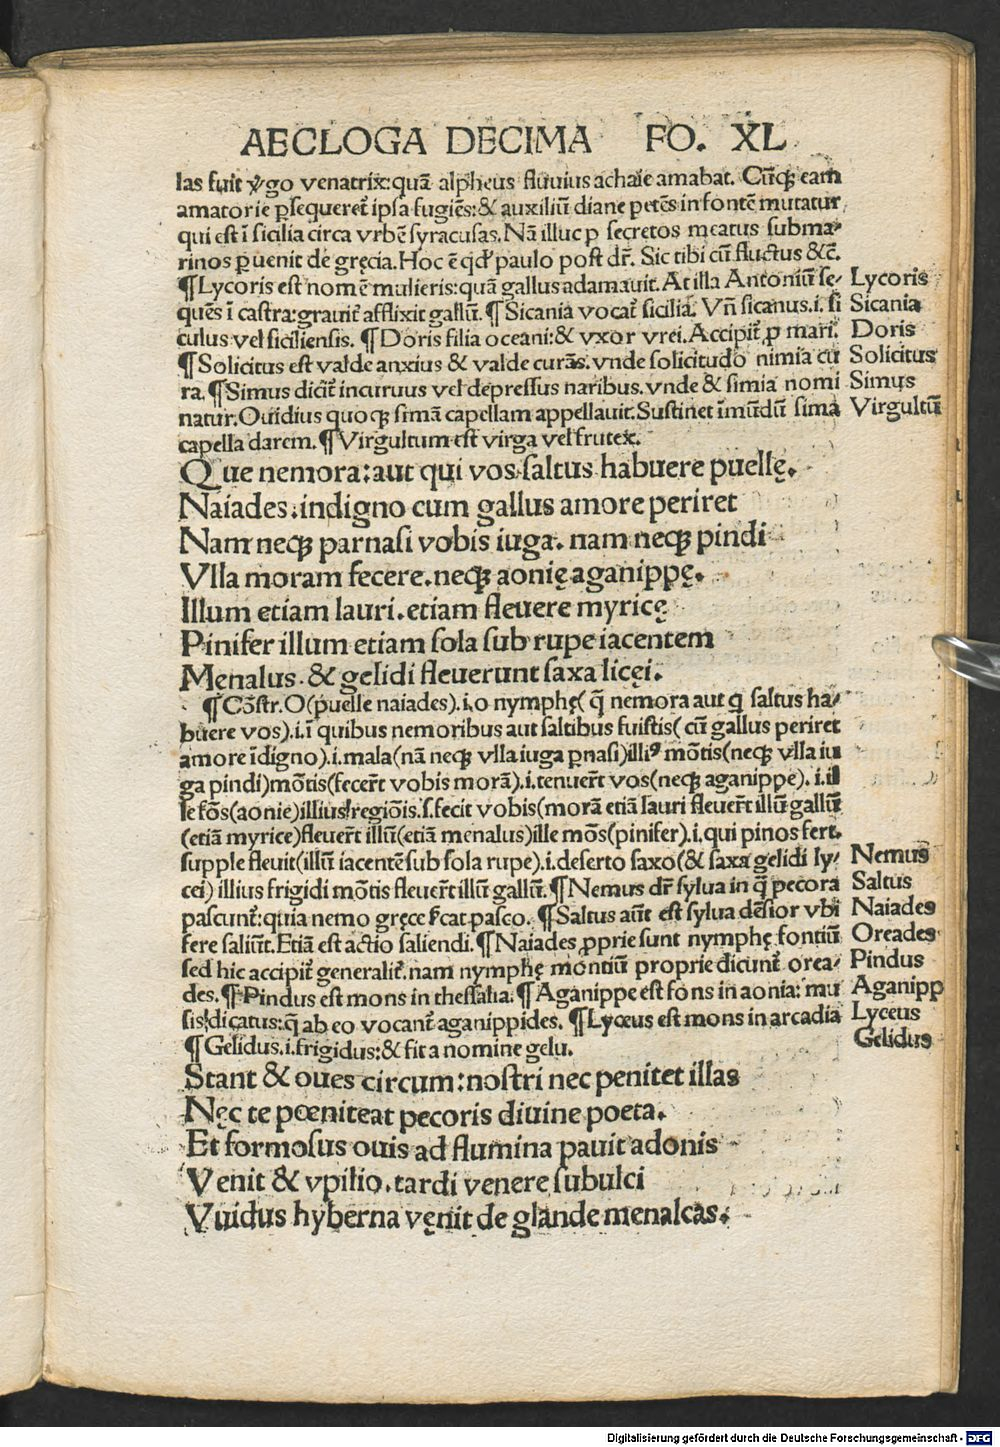 AECLOGA DECIMA FO. XL
las fuit v̓go venatrix:quā alpheus fluuius achaie amabat. Cūq; eam
amatorie ꝑsequeret᷑ ipsa fugiēs:& auxiliū diane petēs in fontē mutatur
qui est ī sicilia circa vrbē syracusas. Nā illuc ꝑ secretos meatus subma-
rinos ꝑuenit de gręcia. Hoc ē qd' paulo post dr̄. Sic tibi cū fluctus &c̄.
¶ Lycoris est nomē mulieris:quā gallus adamauit. At illa Antoniū se-
quēs ī castra:grauit᷑ afflixit gallū. ¶ Sicania vocat᷑ sicilia. Vn̄ sicanus.i. si
culus vel siciliensis. ¶ Doris filia oceani:& vxor vrei. Accipit᷑ ꝓ mari.
¶ Solicitus est valde anxius & valde curās. vnde solicitudo nimia cu
ra. ¶ Simus dicit᷑ incuruus vel depressus naribus. vnde & simia nomi
natur. Ouidius quoq; simā capellam appellauit. Sustinet īmūdū sima
capella darem. ¶ Virgultum est virga vel frutex.
Lycoris
Sicania
Doris
Solicitus
Simus
Virgultū
Que nemora:aut qui vos saltus habuere puellę.
Naiades.indigno cum gallus amore periret
Nam neq; parnasi vobis iuga. nam neq; pindi
Vlla moram fecere.neq; aonię aganippę.
Illum etiam lauri.etiam fleuere myricę
Pinifer illum etiam sola sub rupe iacentem
Menalus. & gelidi fleuerunt saxa licęi.
¶ Cōstr. O(puelle naiades).i.o nymphę( q̄ nemora aut q saltus ha-
buere vos).i.ī quibus nemoribus aut saltibus fuistis( cū gallus periret
amore īdigno).i.mala(nā neq; vlla iuga ꝑnasi)illiꝰ mōtis(neq; vlla iu
ga pindi)mōtis(fecer̄t vobis morā).i.tenuer̄t vos(neq; aganippe).i.il
le fōs(aonie)illius regiōis.s.fecit vobis(morā etiā lauri fleuer̄t illū gallū
(etiā myrice)fleuer̄t illū(etiā menalus)ille mōs(pinifer).i.qui pinos fert.
supple fleuit(illū iacentē sub sola rupe).i.deserto saxo(& saxa gelidi ly-
cei) illius frigidi mōtis fleuer̄t illū gallū. ¶ Nemus dr̄ sylua in q̄ pecora
pascunt᷑:quia nemo gręce s̄cat.pasco. ¶ Saltus aūt est sylua dēsior vbi
fere saliūt. Etiā est actio saliendi. ¶ Naiades ꝓprie sunt nymphę fontiū
sed hic accipit᷑ generalit᷑. nam nymphę montiū proprie dicunt᷑ orea-
des. ¶ Pindus est mons in thessalia. ¶ Aganippe est fons in aonia: mu
sis dicatus:q̄ ab eo vocant᷑ aganippides. ¶ Lyceus est mons in arcadia
¶ Gelidus.i.frigidus:& fit a nomine gelu.
Nemus
Saltus
Naiades
Oreades
Pindus
Aganipp
Lyceus
Gelidus
Stant & oues circum:nostri nec penitet illas
Nęc te pœniteat pecoris diuine poeta.
Et formosus ouis ad flumina pauit adonis
Venit & vpilio.tardi venere subulci
Vuidus hyberna vęnit de glande menalcas.
Digitalisierung gefördert durch die Deutsche Forschungsgemeinschaft - DFG